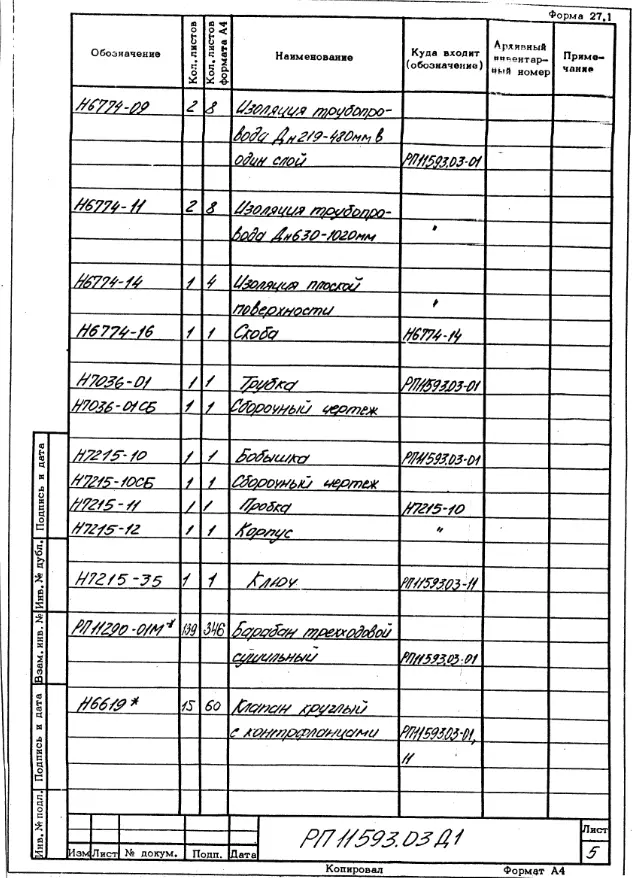 Форма 27.1
Обозначение Кол. листов Кол. листов формата А4 Наименование Куда входит (обозначение) Архивный инвентарный номер Примечание
Н6774-09 2 8 Изоляция трубопро-
вода Дн219-480мм в
один слой РП11593.03-01
Н6774-11 2 8 Изоляция трубопро-
вода Дн630-1020мм "
Н6774-14 1 4 Изоляция плоской
поверхности "
Н6774-16 1 1 Скоба Н6774-14
Н7036-01 1 1 Трубка РП11593.03-01
Н7036-01СБ 1 1 Сборочный чертеж
Н7215-10 1 1 Бобышка РП11593.03-01
Н7215-10СБ 1 1 Сборочный чертеж
Н7215-11 1 1 Пробка Н7215-10
Н7215-12 1 1 Корпус "
Н7215-35 1 1 Ключ РП11593.03-11
РП11290-01М* 139 346 Барабан трехходовой
сушильный РП11593.03-01
Н6619* 15 60 Клапан круглый
с контрфланцами РП11593.03-01,
11
Инв. № подл. Подпись и дата Взам. инв. № Инв. № дубл. Подпись и дата
РП11593.03Д1
Лист
5
Изм Лист № докум. Подп. Дата
Копировал Формат А4